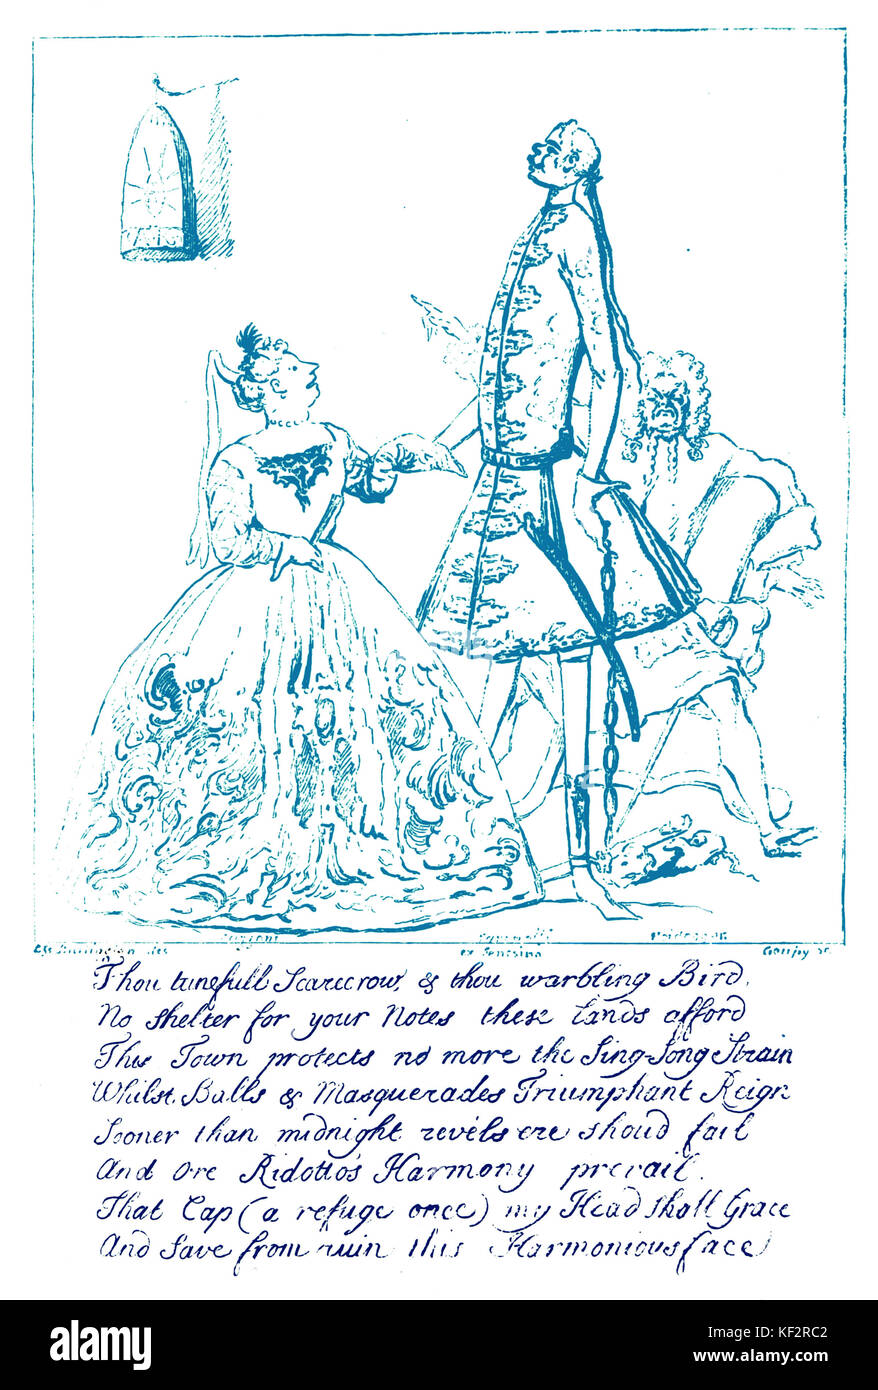 Goupy sc.
Thou tunefull Scarecrow, & thou warbling Bird,
No shelter for your Notes these Lands afford
This Town protects no more the Sing-Song Strain
Whilst Balls & Masquerades Triumphant Reign
Sooner than midnight revels ere shoud fail
And ore Ridotto's Harmony prevail.
That Cap (a refuge once) my Head shall Grace
And Save from ruin this Harmonious face
alamy
a
alamy stock photo
KF2RC2
www.alamy.com